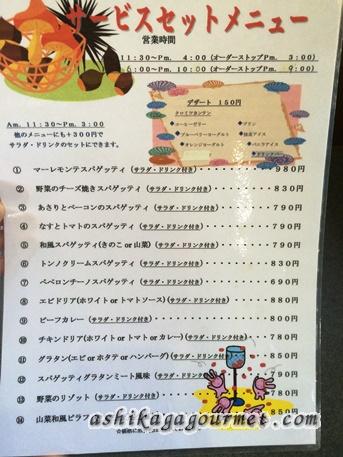 サービスセットメニュー
営業時間
11:30~Pm. 4:00 (オーダーストップPm. 3:00)
6:00~Pm. 10:00 (オーダーストップPm. 9:00)
デザート 150円
コーヒーゼリー ◆プリン
◆ブルーベリーヨーグルト ◆抹茶アイス
◆オレンジヨーグルト ◆バニラアイス
Am. 11:30~Pm. 3:00
他のメニューにも+300円で
サラダ・ドリンクのセットにできます。
① マーレモンテスパゲッティ(サラダ・ドリンク付き) 980円
② 野菜のチーズ焼きスパゲッティ(サラダ・ドリンク付き) 830円
③ あさりとベーコンのスパゲッティ(サラダ・ドリンク付き) 790円
④ なすとトマトのスパゲッティ(サラダ・ドリンク付き) 790円
⑤ 和風スパゲッティ(きのこ or 山菜)(サラダ・ドリンク付き) 790円
⑥ トンノクリームスパゲッティ(サラダ・ドリンク付き) 830円
⑦ ペペロンチーノスパゲッティ(サラダ・ドリンク付き) 690円
⑧ エビドリア(ホワイト or トマトソース)(サラダ・ドリンク付き) 880円
⑨ ビーフカレー(サラダ・ドリンク付き) 800円
⑩ チキンドリア(ホワイト or トマト or カレー)(サラダ・ドリンク付き) 780円
⑪ グラタン(エビ or ホタテ or ハンバーグ)(サラダ・ドリンク付き) 850円
⑫ スパゲッティグラタンミート風味(サラダ・ドリンク付き) 790円
⑬ 野菜のリゾット(サラダ・ドリンク付き) 780円
⑭ 山菜和風ピラフ
ashikagagourmet.com